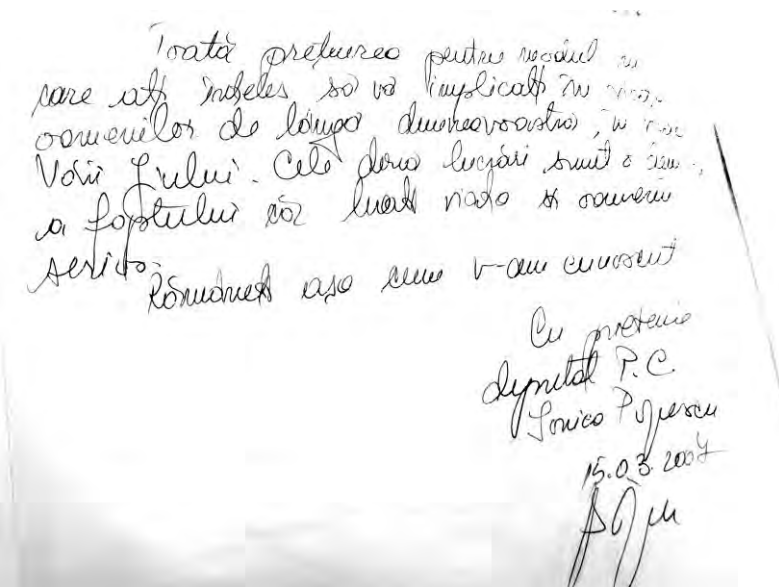 Toată prețuirea pentru modul în
care ați înțeles să vă implicați în viața
oamenilor de lângă dumneavoastră, în
Văii Jiului. Cele două lucrări sunt o
a faptului că luați viața și oamenii
serios.
Rămâneți așa cum v-am cunoscut
Cu prietenie
deputat P.C.
Sonica Popescu
15.03.2007